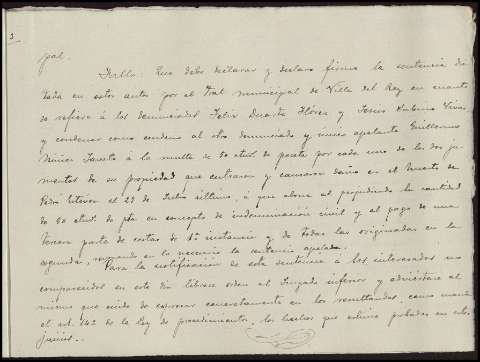 3
pal.
Fallo: Que debo declarar y declaro firme la sentencia dic
tada en estos autos por el Tral municipal de Villa del Rey en cuanto
se refiere á los denunciados Felix Duarte Flores y Jesus Antonio Vivas
y condenar como condeno al otro denunciado y único apelante Guillermo
á la multa de 50 cénts. de peseta por cada uno de los dos ju
mentos de su propiedad que entraron y causaron daño en el
Pedro el 23 de Julio último, á que abone al perjudicado la cantidad
de 50 cénts. de pta en concepto de indemnización civil y al pago de una
tercera parte de costas de 1ª instancia y de todas las originadas en la
segunda, revocando en lo necesario la sentencia apelada.
Para la notificación de esta sentencia á los interesados no
comparecidos en este dia librese orden al Juzgado inferior y adviertase al
mismo que cuide de expresar concretamente en los resultandos, como manda
el art. 142 de la Ley de procedimientos, los hechos que estime probados en el
juicio.